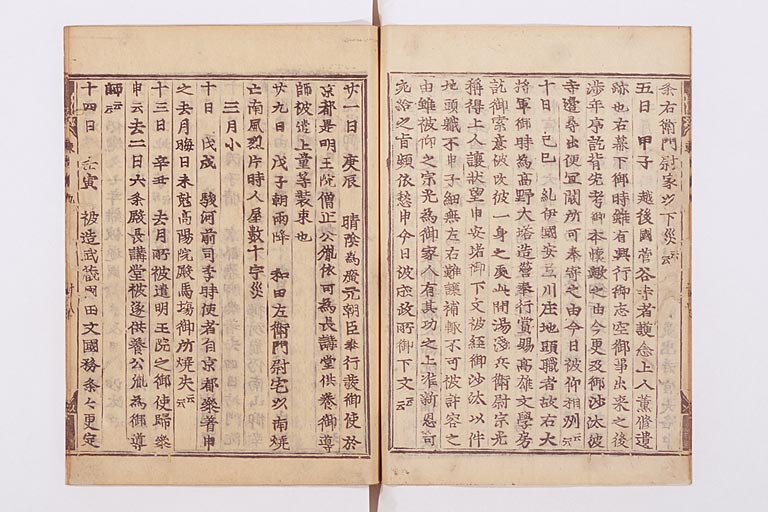 条右衛門尉家以下災云云
五日 甲子 越後國菅谷寺者護念上人薫修遺
跡也右幕下御時雖有興行御志空御事出来之後
渉年序訖背先考御本懐歟之由今更及御沙汰彼
寺邊尋出便宜闕所可奉寄之由今日被仰相州云云
十日 己巳 紀伊國安三川庄地頭職者故右大
將軍御時為高野大塔造營奉行賞賜高雄文學房
訖御素意被改彼一身之處此間湯淺兵衛尉宗光
稱得上人讓狀望申安堵御下文被經御沙汰以件
地頭職不申子細無左右難讓補歟不可被許容之
由雖被仰之宗光為御家人有其功之上准新恩可
充給之旨頻依愁申今日被成政所御下文云云
廿一日 庚辰 晴陰為廣元朝臣奉行發御使於
京都是明王院僧正公胤依可為長講堂供養御導
師被遣上童等装束也
廿九日 戊子朝雨降 和田左衛門尉宅以南焼
亡南風烈片時人屋數十宇災
三月小
十日 戊戌 駿河前司季時使者自京都參著申
之去月晦日未尅高陽院殿馬塲御所焼失云云
十三日 辛丑 去月所被遣明王院之御使歸參
申云去二日六条殿長講堂被遂供養公胤為御導
師云云
十四日 壬寅 被造武蔵國田文國務条々更定